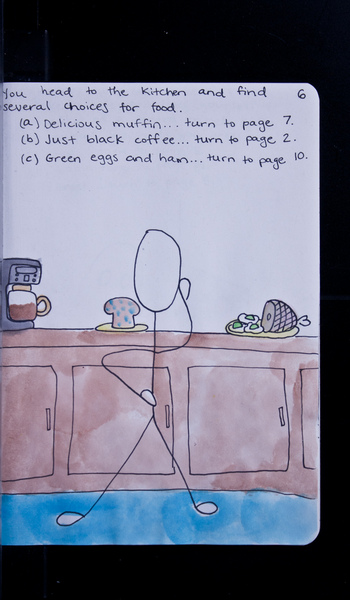 You head to the kitchen and find 6
several choices for food.
(a) Delicious muffin... turn to page 7.
(b) Just black coffee... turn to page 2.
(c) Green eggs and ham... turn to page 10.